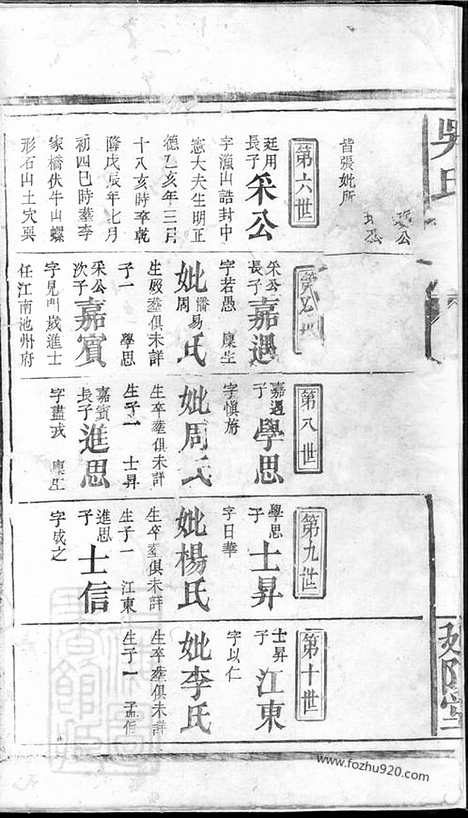 皆張妣所
第六世
廷用長子 采公
字漁山誥封中
憲大夫生明正
德乙亥年三月
十八亥時卒乾
隆戊辰年七月
初四巳時塟李
家橋伏牛山螺
形石山土穴巽
采公長子 嘉遇
字若愚 廩生
妣潘易周氏
生歿塟俱未詳
子一 學思
采公次子 嘉賓
任江南池州府
第八世
嘉遇子 學思
字慎旃
妣周氏
生卒塟俱未詳
生子一 士昇
嘉賓長子 進思
字盡我 廩生
第九世
學思子 士昇
字日華
妣楊氏
生卒塟俱未詳
生子一 江東
進思子 士信
字成之
第十世
士昇子 江東
字以仁
妣李氏
生卒塟俱未詳
生子一
www.fozhu920.com